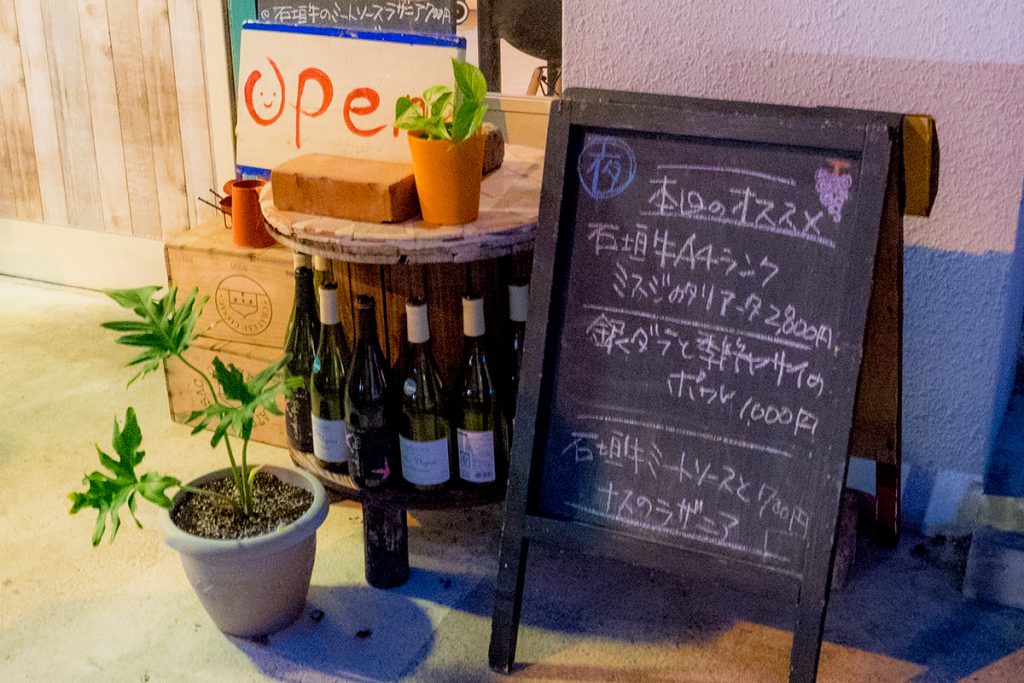 石垣牛のミートソースラザニア 700円
open
夜
本日のオススメ
石垣牛A4ランク
ミスジのタリアータ2,800円
銀ダラと季節ヤサイの
ポワレ 1,000円
石垣牛ミートソースと700円
ナスのラザニア